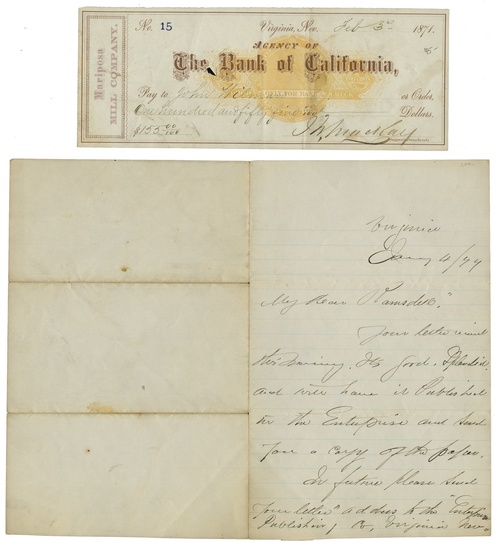 Mariposa
MILL COMPANY.
No. 15 Virginia, Nev. Feb 3d 1871.
AGENCY OF
The Bank of California,
Pay to John or Order,
One hundred and fifty five Dollars,
$155
Virginia
4/77
My Dear Ramsdell"
Your letter
this morning. Its good. Splendid.
and will have it Published
in the Enterprise and send
you a copy of the paper.
In future please send
your letter address to the "Enterprise
Publishing Co, Virginia Nev-